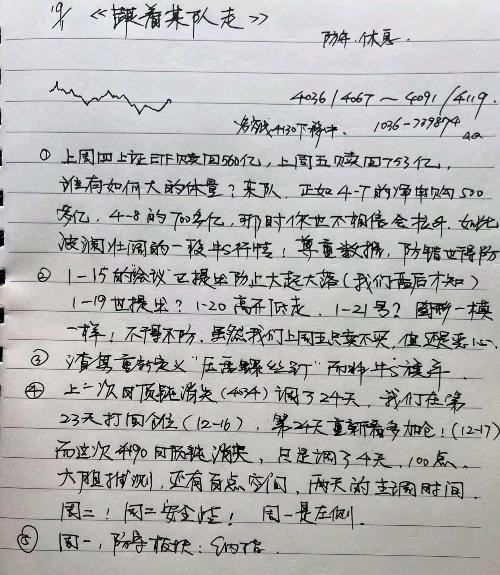 19/1 《跟着某队走》
防守.休息.
4036/4067~4091/4119.
多空线4130下移中. 1036-739874
① 上周四上证ETF赎回560亿,上周五赎回753亿,
谁有如何大的体量?某队.正如4-7的净申购500
多亿,4-8的700多亿,那时你也不相信会拉升.如此
波澜壮阔的一段牛行情!尊重数据,防错也得防
② 1-15的会议已提出防止大起大落(我们后才知)
1-19也提出?1-20高开低走.1-21号?图形一模
一样!不得不防.虽然我们上周五只卖不买,但还是
③ 渣其重新定义"压舌螺丝钉"而将牛
④ 上一次日顶钝消失(4034)调了24天,我们在第
23天打回仓位(12-16),第24天重新看多加仓!(12-17)
而这次4190日顶钝消失,只是调了4天.100点.
大胆推测,还有百点空间,两天的主调时间.
周二!周二安全性!周一是左侧.
⑤ 周一,防守板块: